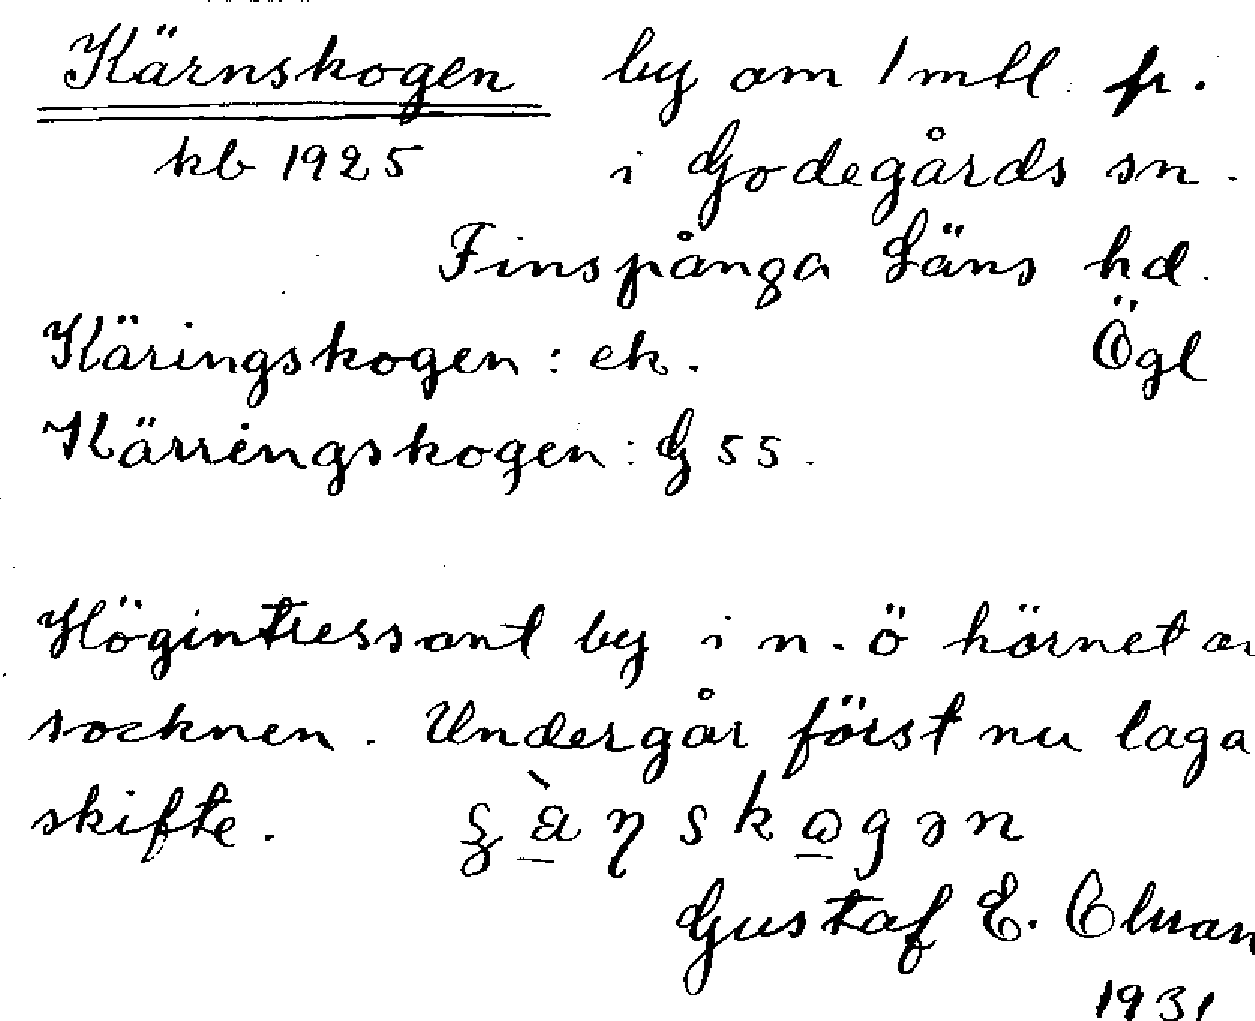 Kärnskogen by om 1 mtl. fr.
kb 1925 i Godegårds sn.
Finspånga Läns hd.
Käringskogen : ek. Ögl
Kärringskogen : G 55.
Högintressant by i n. ö hörnet a
socknen. Undergår först nu laga
skifte.
Gustaf E.
1931